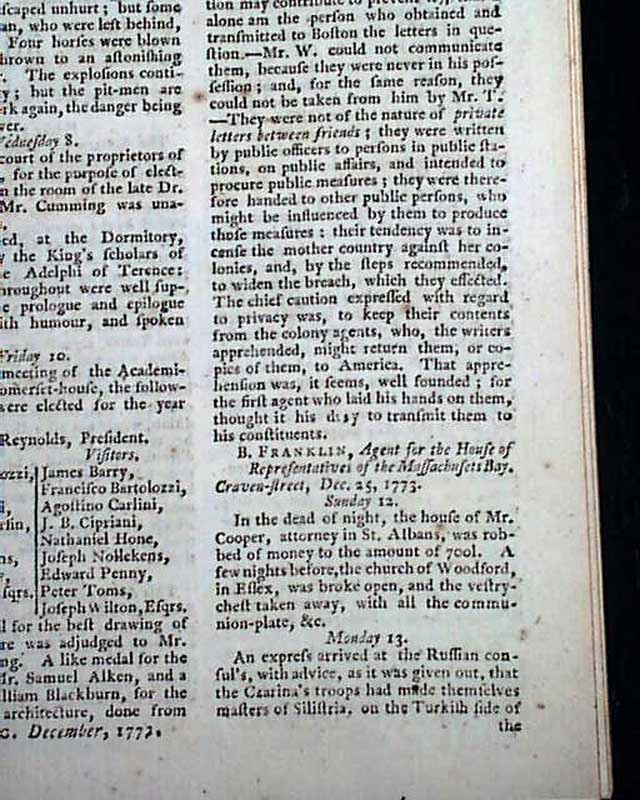 scaped unhurt; but some
an, who were left behind,
Four horses were blown
hrown to an astonishing
The explosions conti-
y; but the pit-men are
rk again, the danger being
ver.
Wednesday 8.
court of the proprietors of
, for the purpose of elect-
n the room of the late Dr.
Mr. Cumming was una-
ed, at the Dormitory,
y the King's scholars of
e Adelphi of Terence:
hroughout were well sup-
e prologue and epilogue
ith humour, and spoken
Friday 10.
meeting of the Academi-
omerset-house, the follow-
were elected for the year
Reynolds, President.
Visitors.
ozzi, James Barry,
Francisco Bartolozzi,
i, Agostino Carlini,
rlin, J. B. Cipriani,
Nathaniel Hone,
ns, Joseph Nollekens,
Edward Penny,
sqrs. Peter Toms,
Joseph Wilton, Esqrs.
l for the best drawing of
re was adjudged to Mr.
ng. A like medal for the
Mr. Samuel Alken, and a
lliam Blackburn, for the
architecture, done from
December, 1773.
tion may contribute to prevent
alone am the person who obtained and
transmitted to Boston the letters in que-
stion.—Mr. W. could not communicate
them, because they were never in his pos-
session; and, for the same reason, they
could not be taken from him by Mr. T.
—They were not of the nature of private
letters between friends; they were written
by public officers to persons in public sta-
tions, on public affairs, and intended to
procure public measures; they were there-
fore handed to other public persons, who
might be influenced by them to produce
those measures: their tendency was to in-
cense the mother country against her co-
lonies, and, by the steps recommended,
to widen the breach, which they effected.
The chief caution expressed with regard
to privacy was, to keep their contents
from the colony agents, who, the writers
apprehended, might return them, or co-
pies of them, to America. That appre-
hension was, it seems, well founded; for
the first agent who laid his hands on them,
thought it his duty to transmit them to
his constituents.
B. FRANKLIN, Agent for the House of
Representatives of the Massachusets Bay.
Craven-street, Dec. 25, 1773.
Sunday 12.
In the dead of night, the house of Mr.
Cooper, attorney in St. Albans, was rob-
bed of money to the amount of 700l. A
few nights before, the church of Woodford,
in Essex, was broke open, and the vestry-
chest taken away, with all the commu-
nion-plate, &c.
Monday 13.
An express arrived at the Russian con-
sul's, with advice, as it was given out, that
the Czarina's troops had made themselves
masters of Silistria, on the Turkish side of
the